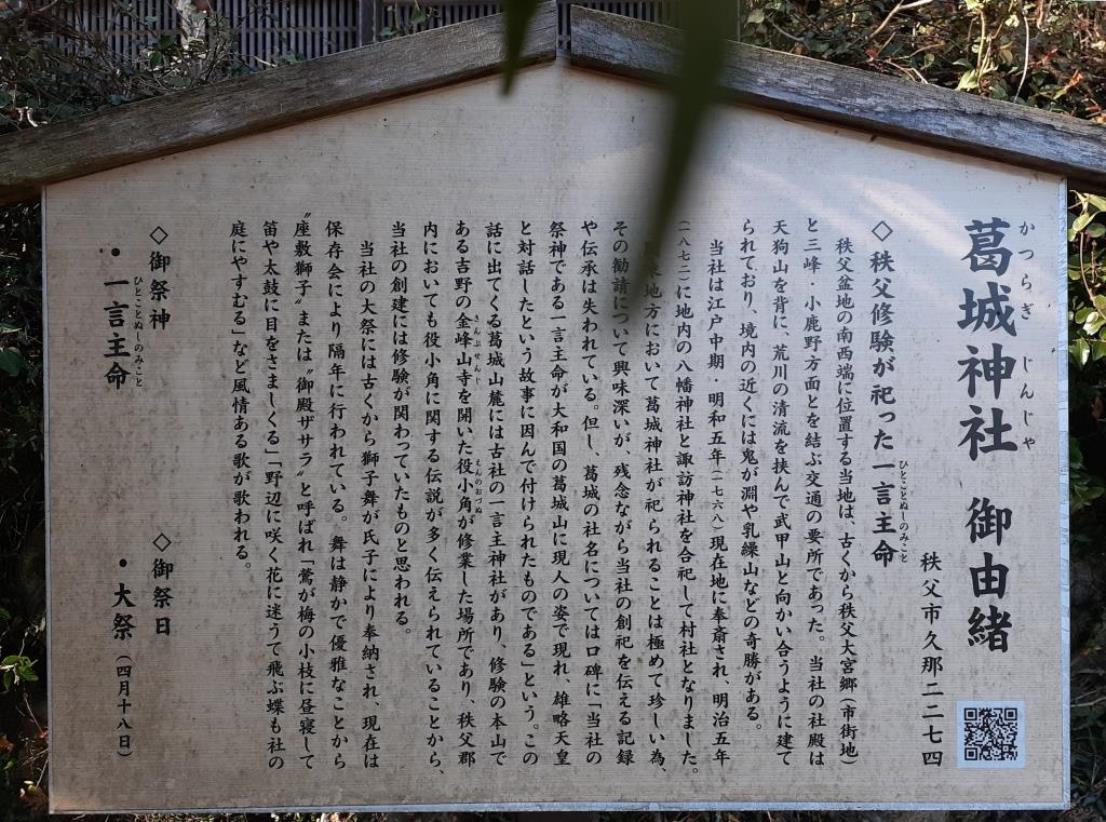 葛城神社　御由緒
かつらぎ　じんじゃ
秩父市久那二二七四
◇秩父修験が祀った一言主命
ひとことぬしのみこと
秩父盆地の南西端に位置する当地は、古くから秩父大宮郷（市街地）
と三峰・小鹿野方面とを結ぶ交通の要所であった。当社の社殿は
天狗山を背に、荒川の清流を挟んで武甲山と向かい合うように建て
られており、境内の近くには鬼が淵や乳繰山などの奇勝がある。
当社は江戸中期・明和五年（一七六八）現在地に奉斎され、明治五年
（一八七二）に地内の八幡神社と諏訪神社を合祀して村社となりました。
地方において葛城神社が祀られることは極めて珍しい為、
その勧請について興味深いが、残念ながら当社の創祀を伝える記録
や伝承は失われている。但し、葛城の社名については口碑に「当社の
祭神である一言主命が大和国の葛城山に現人の姿で現れ、雄略天皇
と対話したという故事に因んで付けられたものである」という。この
話に出てくる葛城山麓には古社の一言主神社があり、修験の本山で
ある吉野の金峰山寺を開いた役小角が修業した場所であり、秩父郡
きんぷせんじ
えんのおづぬ
内においても役小角に関する伝説が多く伝えられていることから、
当社の創建には修験が関わっていたものと思われる。
当社の大祭には古くから獅子舞が氏子により奉納され、現在は
保存会により隔年に行われている。舞は静かで優雅なことから
〝座敷獅子〟または〝御殿ザサラ〟と呼ばれ「鶯が梅の小枝に昼寝して
笛や太鼓に目をさましくる」「野辺に咲く花に迷うて飛ぶ蝶も社の
庭にやすむる」など風情ある歌が歌われる。
◇御祭神
・一言主命
ひとことぬしのみこと
◇御祭日
・大祭（四月十八日）